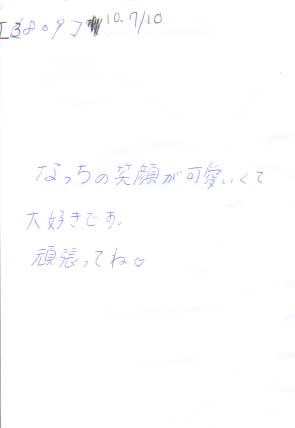 10.7/10
なっちの笑顔が可愛いくて
大好きです。
頑張ってね♡